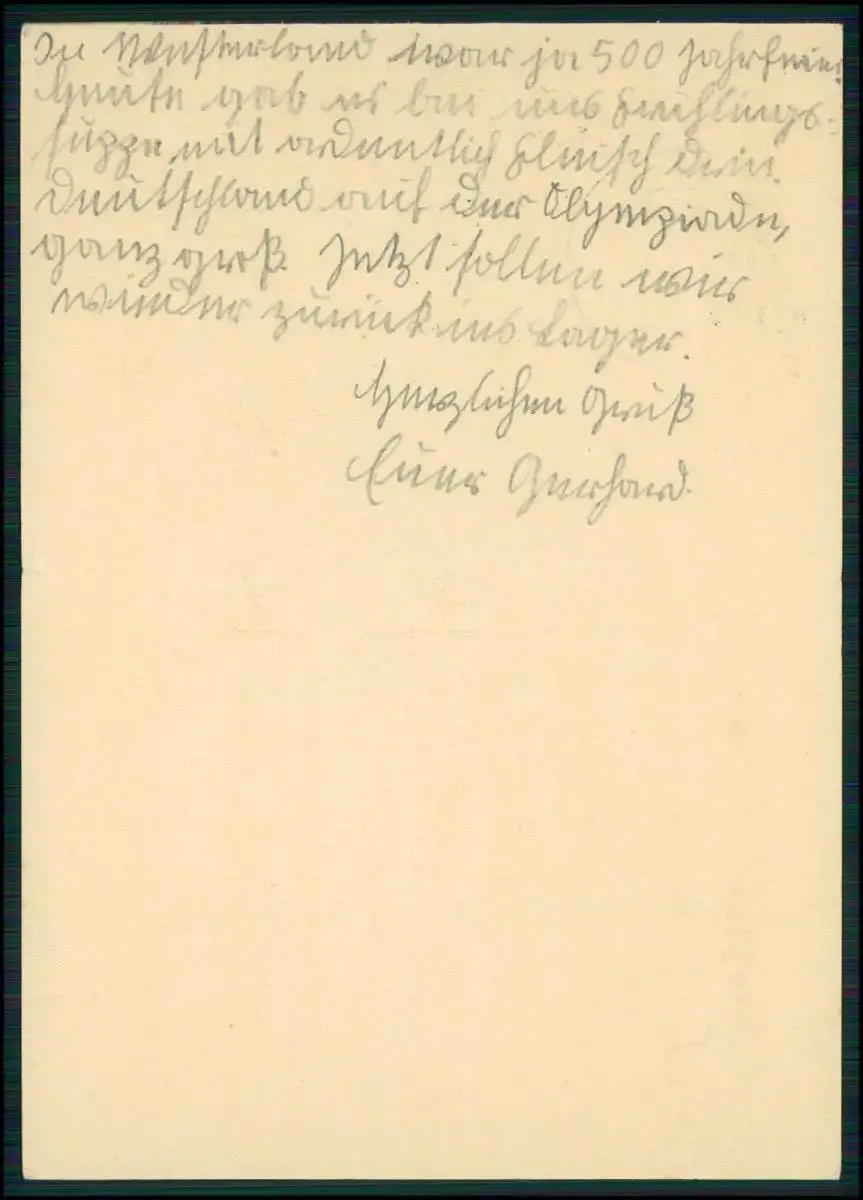 In Westerland war ja 500 Jahrfeier.
Heute gab es bei uns Frühlings-
suppe mit ordentlich Fleisch drin.
Deutschland auf der Olympiade,
ganz groß. Jetzt sollen wir
wieder zurück ins Lager.
Herzlichen Gruß
Euer Gerhard.